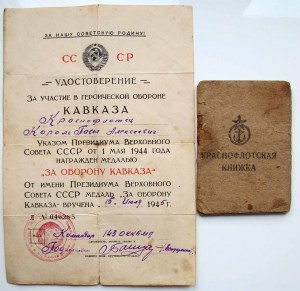 ЗА НАШУ СОВЕТСКУЮ РОДИНУ!
СС СР
УДОСТОВЕРЕНИЕ
ЗА УЧАСТИЕ В ГЕРОИЧЕСКОЙ ОБОРОНЕ
КАВКАЗА
Краснофлотец
УКАЗОМ ПРЕЗИДИУМА ВЕРХОВНОГО
СОВЕТА СССР ОТ 1 МАЯ 1944 ГОДА
НАГРАЖДЕН МЕДАЛЬЮ
„ЗА ОБОРОНУ КАВКАЗА"
ОТ ИМЕНИ ПРЕЗИДИУМА ВЕРХОВНОГО
СОВЕТА СССР МЕДАЛЬ „ЗА ОБОРОНУ
КАВКАЗА" ВРУЧЕНА 1945 г.
Командир 143
КРАСНОФЛОТСКАЯ
КНИЖКА